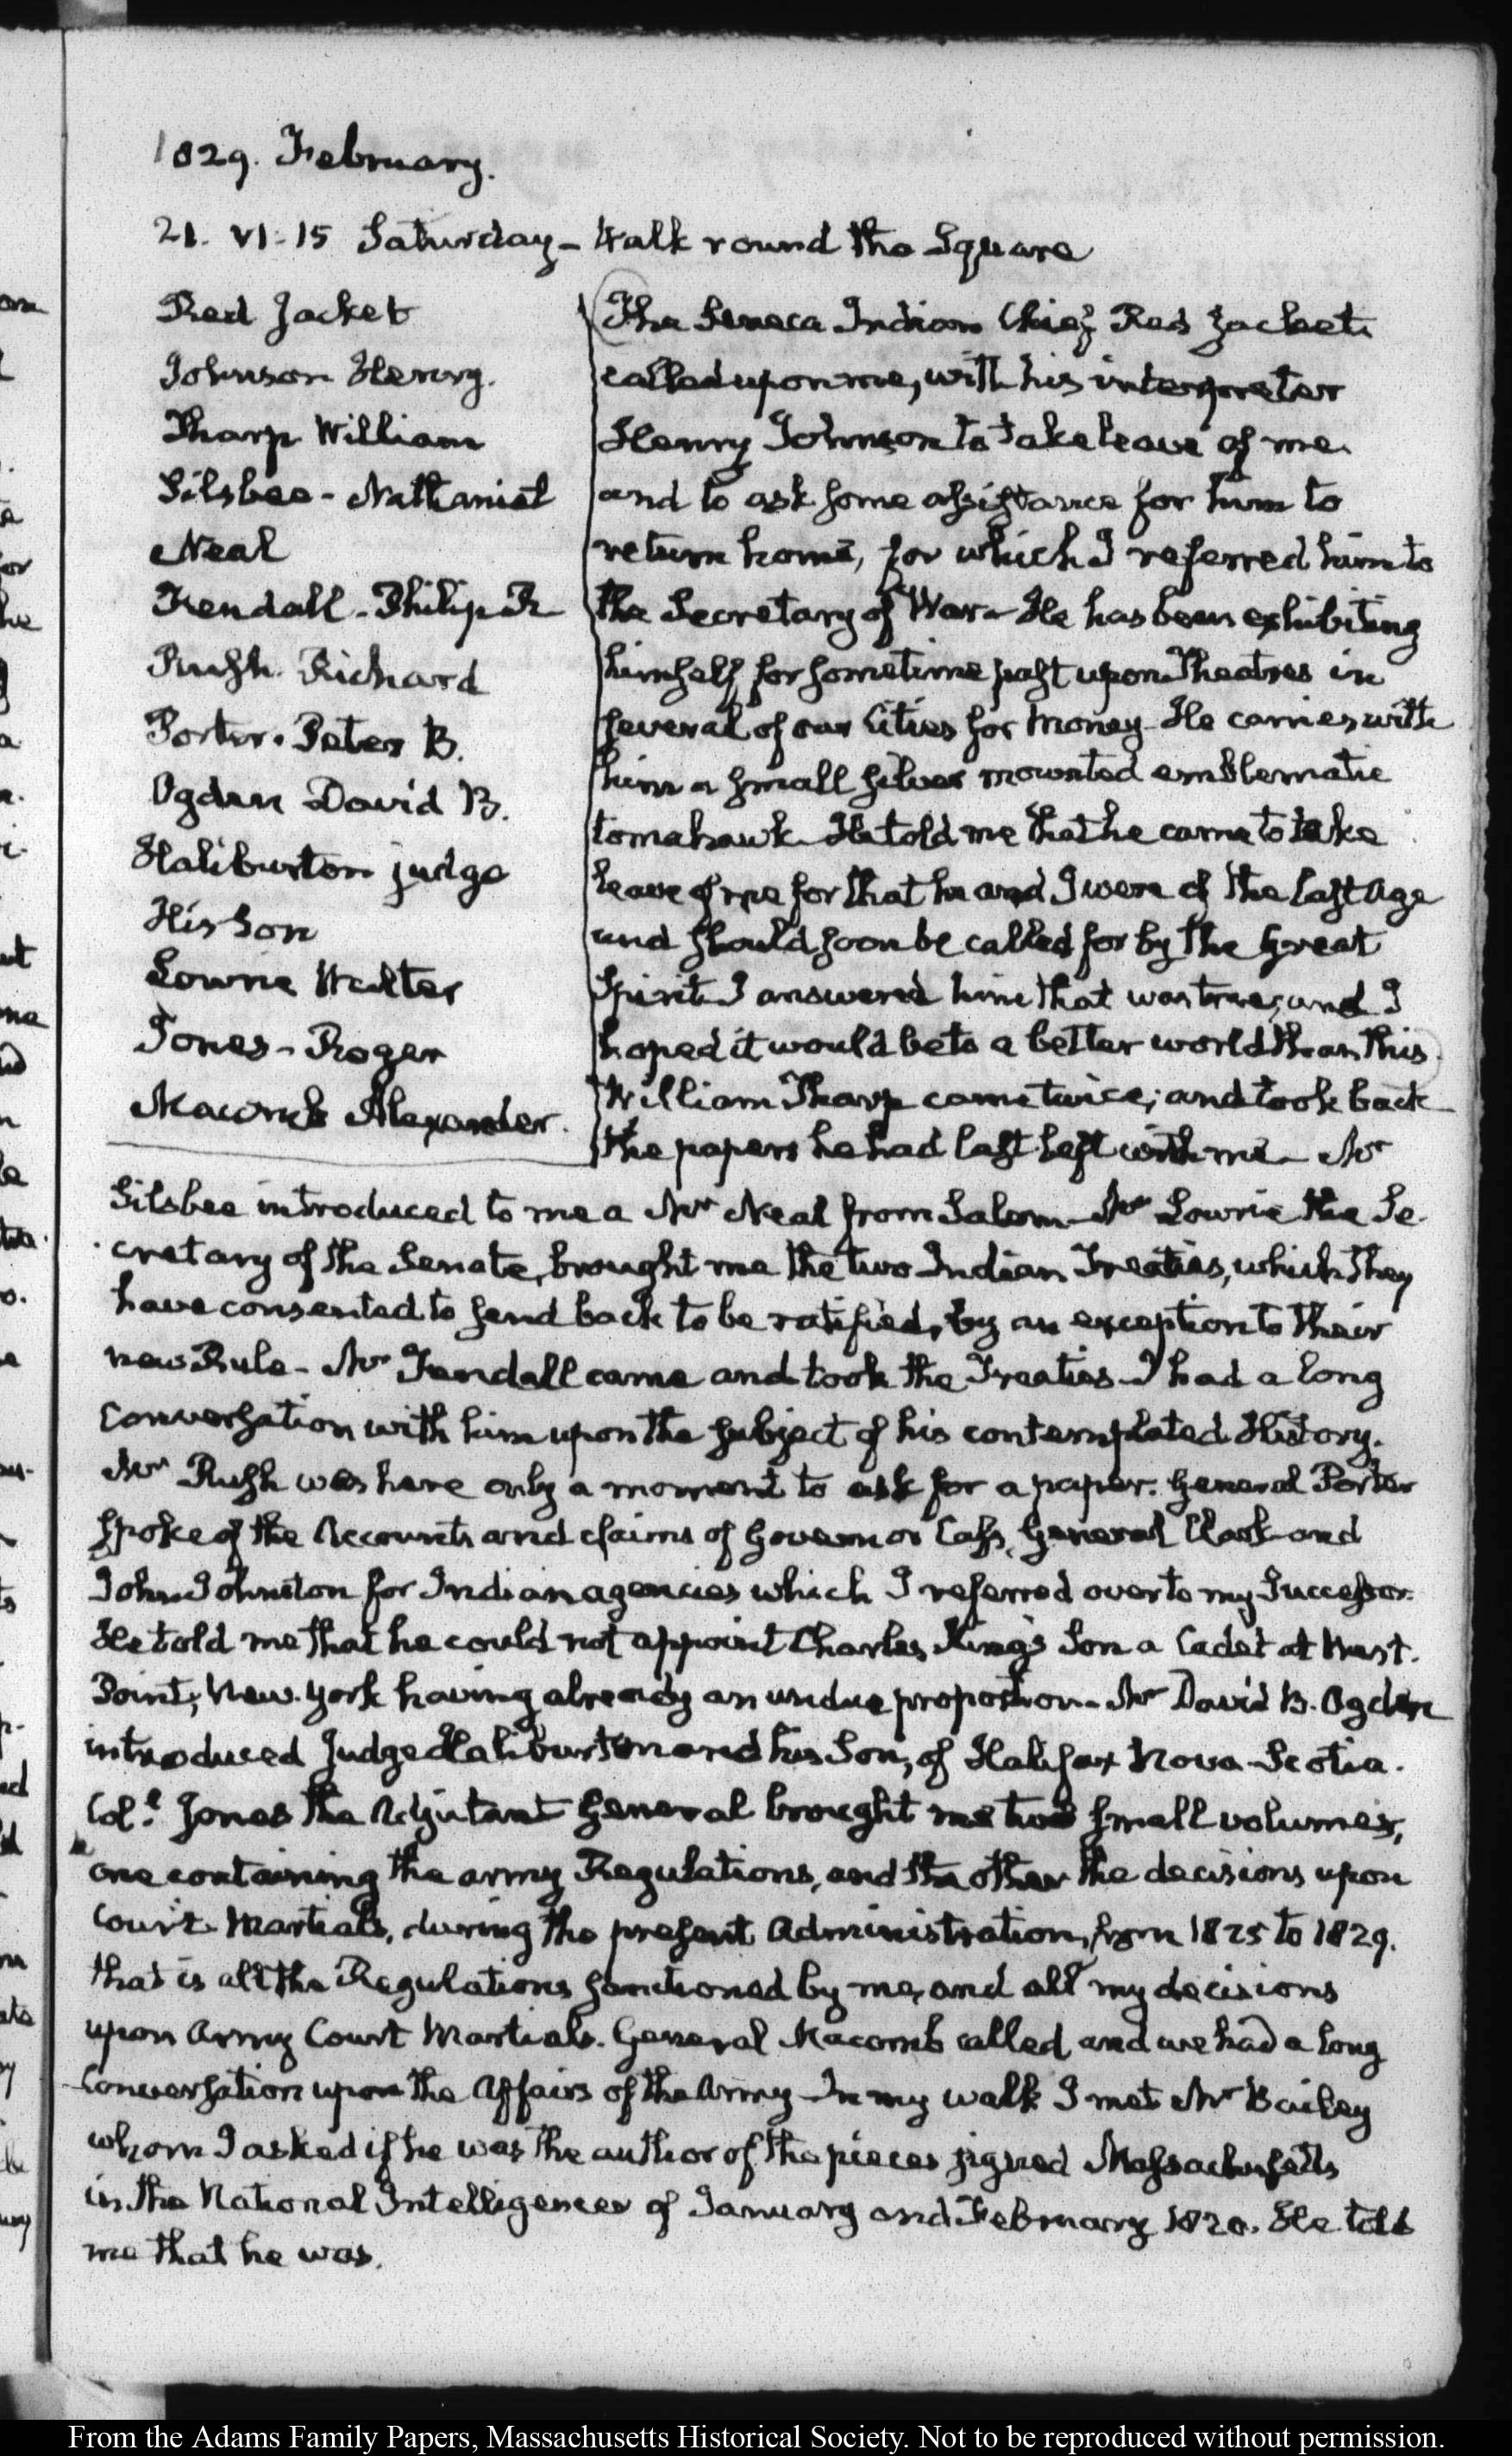 1829. February.
21. VI:15 Saturday – Walk round the Square
Red Jacket
Johnson Henry.
Tharp William
Silsbee - Nathaniel
Neal
Fendall - Philip R
Rush. Richard
Porter. Peter B.
Ogden David B.
Haliburton judge
His Son
Lowrie Walter
Jones - Roger
Macomb Alexander.
The Seneca Indian Chief Red Jacket
called upon me, with his interpreter
Henry Johnson to take leave of me
and to ask some assistance for him to
return home, for which I referred him to
the Secretary of War – He has been exhibiting
himself for sometime past upon Theatres in
several of our Cities for Money – He carries with
him a small silver mounted emblematic
tomahawk – He told me that he came to take
leave of me for that he and I were of the last age
and should soon be called for by the Great
Spirit – I answered him that was true, and I
hoped it would be to a better world than this.
William Tharp came twice; and took back
the papers he had last left with me – Mr
Silsbee introduced to me a Mr Neal from Salem – Mr Lowrie the Se-
cretary of the Senate, brought me the two Indian Treaties, which they
have consented to send back to be ratified, by an exception to their
new Rule – Mr Fendall came and took the Treaties – I had a long
Conversation with him upon the subject of his contemplated History.
Mr Rush was here only a moment to ask for a paper. General Porter
spoke of the Accounts and claims of Governor Cass, General Clark and
John Johnston for Indian agencies which I referred over to my Successor.
He told me that he could not appoint Charles King's Son a Cadet at West-
Point; New-York having already an undue proportion – Mr David B. Ogden
introduced Judge Haliburton and his Son, of Halifax Nova-Scotia.
Col.l Jones the Adjutant General brought me two small volumes,
one containing the army Regulations, and the other the decisions upon
Court-Martials, during the present Administration, from 1825 to 1829.
that is all the Regulations sanctioned by me, and all my decisions
upon Army Court Martials. General Macomb called and we had a long
Conversation upon the Affairs of the Army – In my walk I met Mr Bailey
whom I asked if he was the author of the pieces signed Massachusetts
in the National Intelligencer of January and February 1820. He told
me that he was.
From the Adams Family Papers, Massachusetts Historical Society. Not to be reproduced without permission.